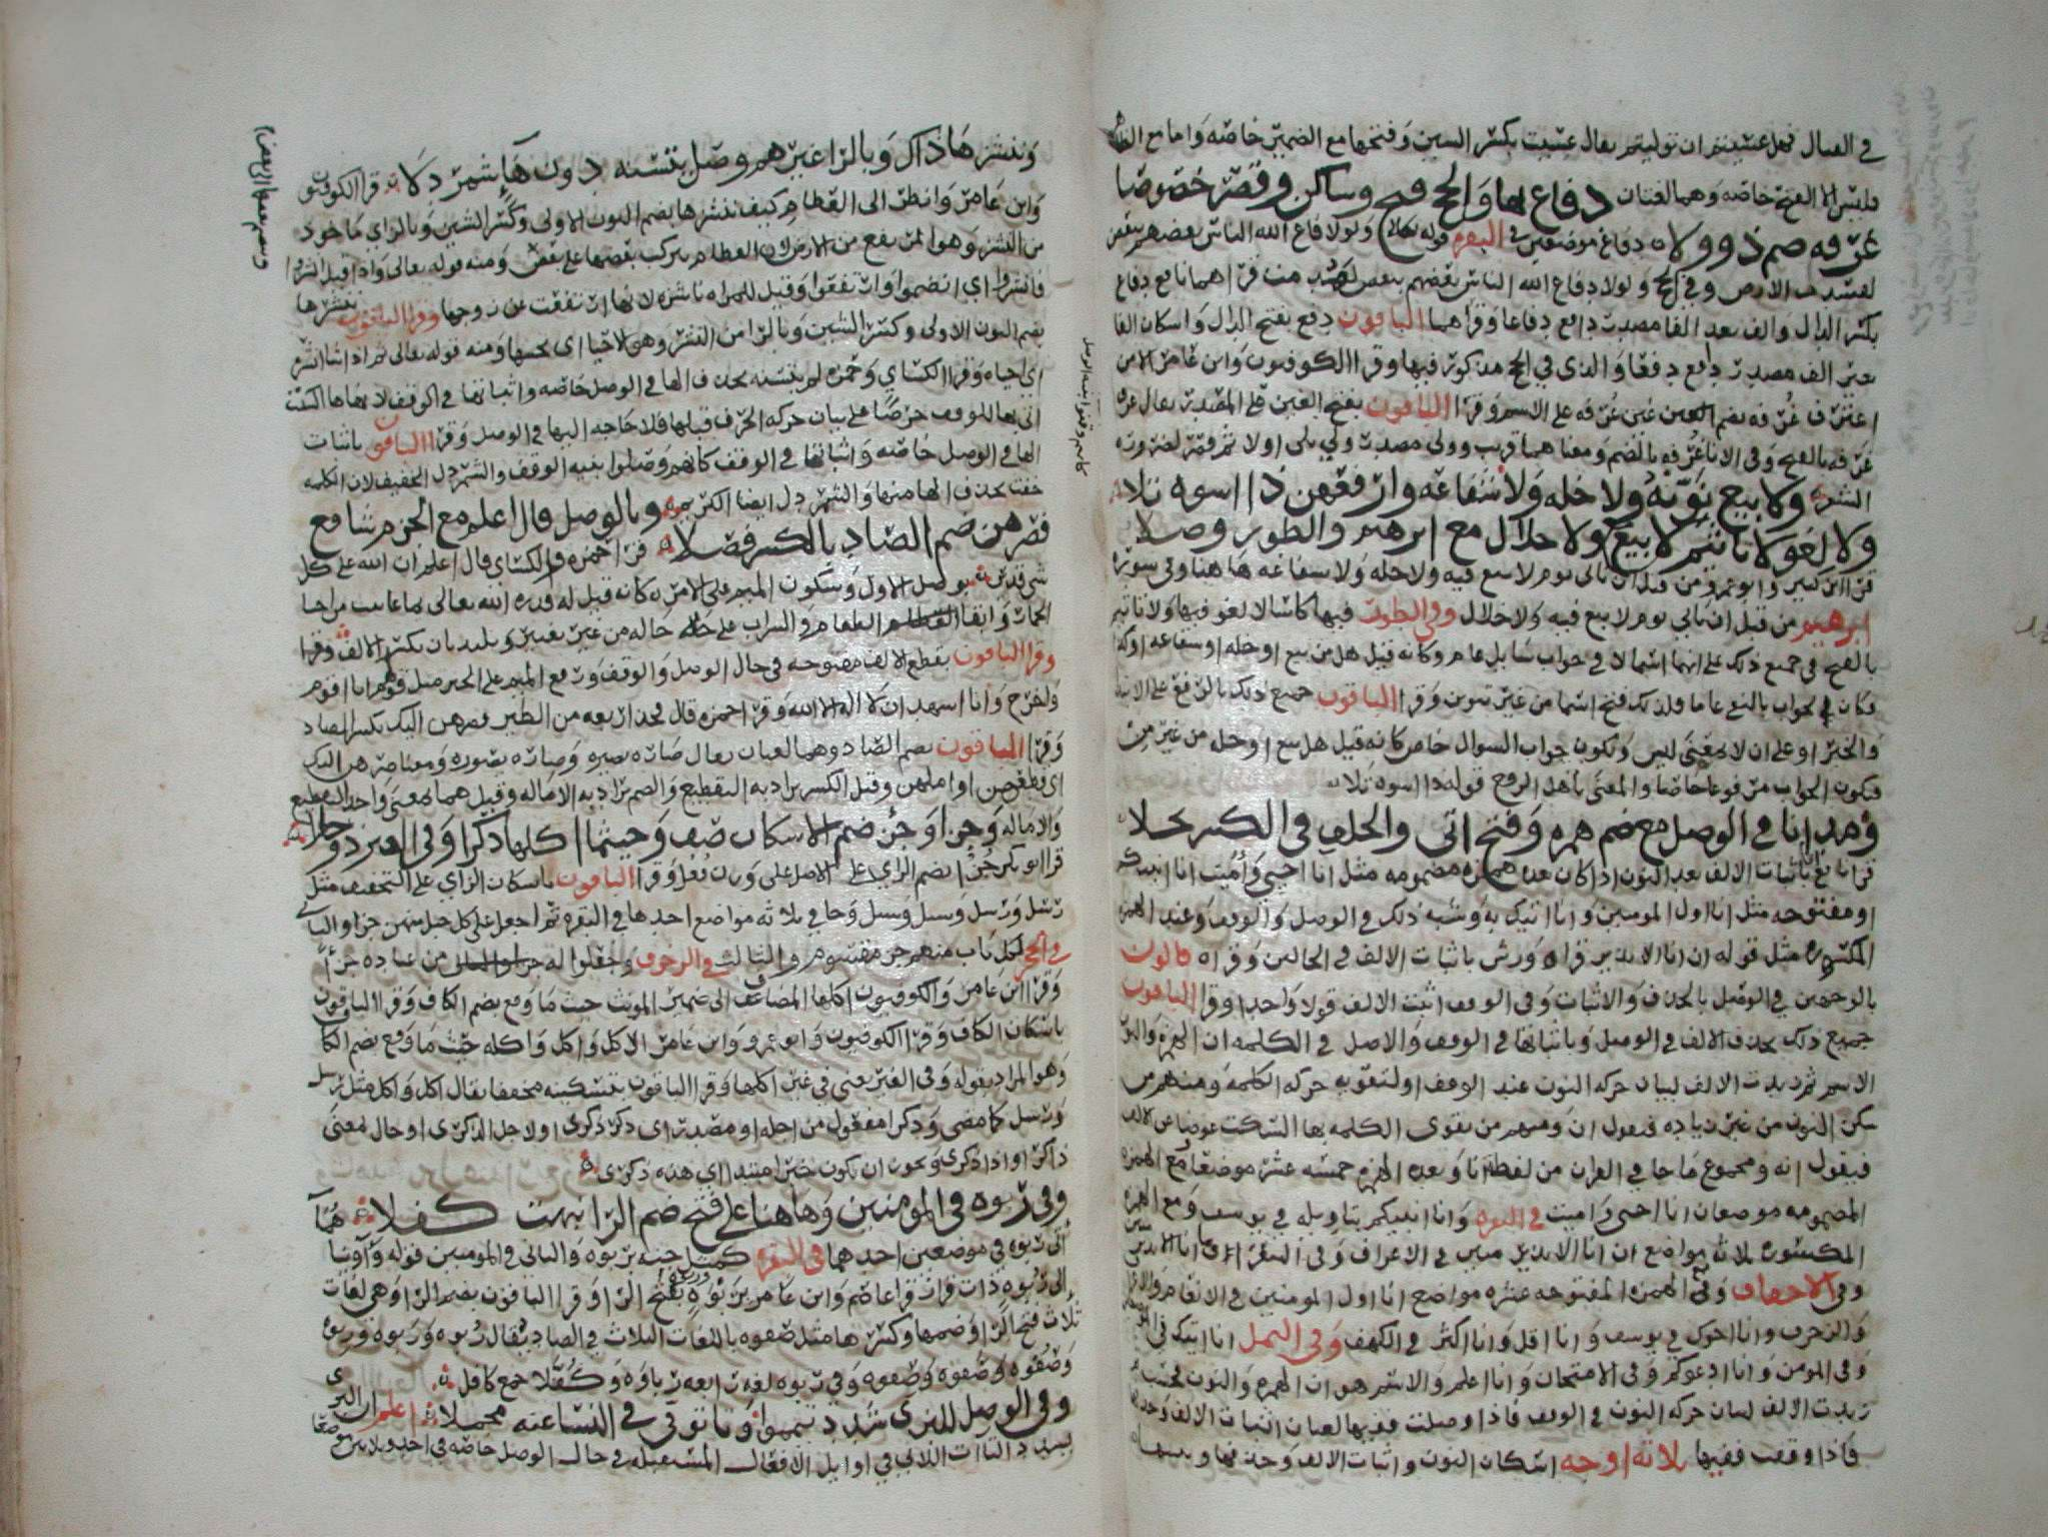 في القتال فهل عسيتم ان توليتم يقال عسيت بكسر السين وفتحها مع الضمير خاصه واما مع
فليس الا الفتح خاصه وهما لغتان دفاع بها والحج فتح وساكن وقصر خصوصا
غرفه ضم ذو ولا دفاع موضعين في البقره قوله تعالى ولولا دفاع الله الناس بعضهم ببعض
لفسدت الارض وفي الحج ولولا دفاع الله الناس بعضهم ببعض لهدمت قراهما نافع دفاع
بكسر الدال والف بعد الفا مصدر دافع دفاعا وقراهما الباقون دفع بفتح الدال واسكان الفا
بغير الف مصدر دفع دفعا والذي في الحج مذكور فيها وقرا الكوفيون وابن عامر الا من
اغترف غرفه بضم الغين على الاسم وقرا الباقون بفتح الغين على المصدر يقال غرف
غرفه بالفتح وفي الانا غرفه بالضم ومعناهما قريب وولى مصدر ولي يلي اولا ثم قصر لضروره
الشعر ولا بيع نونه ولا خله ولا شفاعه وارفعهن ذا اسوه تلا
ولا لغو لا تاثيم لا بيع ولا خلال مع ابرهيم والطور وصلا
قرا ابن كثير وابو عمرو من قبل ان ياتي يوم لا بيع فيه ولا خله ولا شفاعه هاهنا وفي سورة
ابرهيم من قبل ان ياتي يوم لا بيع فيه ولا خلال وفي الطور فيها كاسا لا لغو فيها ولا تاثيم
بالفتح في جميع ذلك على انها اسما لا في جواب سايل عام وكانه قيل هل من بيع او خله او شفاعه
فكان الجواب بالنفي عاما فلذلك فتح اسما من غير تنوين وقرا الباقون جميع ذلك بالرفع على الابتدا
والخبر او على ان لا بمعنى ليس وتكون جواب السوال خاص كانه قيل هل بيع او خله من غير من
فيكون الجواب مرفوعا خاصا والمعنى
ومد انا في الوصل مع ضم همزه وفتح اتى والخلف في الكسر بجلا
قرا نافع باثبات الالف بعد النون اذا كان بعده همزه مضمومه مثل انا احيي واميت انا انبيكم
او مفتوحه مثل انا اول المومنين وانا اتيك به وشبه ذلك في الوصل والوقف وعند الهمزه
المكسوره مثل قوله ان انا الا نذير قراه ورش باثبات الالف في الحالين وقراه قالون
بالوجهين في الوصل بالحذف والاثبات وفي الوقف اثبت الالف قولا واحدا وقرا الباقون
جميع ذلك بحذف الالف في الوصل وباثباتها في الوقف والاصل في الكلمه ان الهمزه والنون
الاسم ثم زيدت الالف لبيان حركه النون عند الوقف او لتقويه حركه الكلمه ومنهم من
سكن النون من غير زياده فيقول ان ومنهم من يقوى الكلمه بها السكت عوضا عن الالف
فيقول انه ومجموع ما جا في القران من لفظ انا وبعده الهمزه خمسه عشر موضعا مع الهمزه
المضمومه موضعان انا احيي واميت في البقره وانا انبيكم بتاويله في يوسف ومع الهمزه
المكسوره ثلاثه مواضع ان انا الا نذير مبين في الاعراف وفي الشعرا وما انا الا نذير
وفي الاحقاف وفي الهمزه المفتوحه عشره مواضع انا اول المومنين في الانعام والاعراف
والزخرف وانا اخوك في يوسف وانا اقل وانا اكثر في الكهف وفي النمل انا اتيك في
وفي المومن وانا ادعوكم وفي الامتحان وانا اعلم والاسم هو ان الهمزه والنون
زيدت الالف لبيان حركه النون في الوقف فاذا وصلت ففيها لغتان اثبات الالف وحذفها
فاذا وقفت ففيها ثلاثه اوجه اسكان النون واثبات الالف وحذفها
كانهم وقفوا بنية الوصل
وننشزها ذاك وبالرا غيرهم وصل يتسنه دون هاء شمردلا قرا الكوفيون
وابن عامر وانظر الى العظام كيف ننشزها بضم النون الاولى وكسر الشين وبالزاي ماخوذ
من النشز وهو المرتفع من الارض لان العظام يتركب بعضها على بعض ومنه قوله تعالى واذا قيل انشزوا
فانشزوا اي انضموا وارتفعوا وقيل للمراه ناشزه لانها ارتفعت عن زوجها وقرا الباقون ننشرها
بضم النون الاولى وكسر الشين وبالرا من النشر وهو الاحيا اي نحييها ومنه قوله تعالى ثم اذا شا انشره
اي احياه وقرا الكساي وحمزه لم يتسنه بحذف الها في الوصل خاصه واثباتها في الوقف لانها ها السكت
اتى بها للوقف حرصا على بيان حركه الحرف قبلها فلا حاجه اليها في الوصل وقرا الباقون باثبات
الها في الوصل خاصه واثباتها في الوقف كانهم وصلوا بنيه الوقف والشمردل الخفيف لان الكلمه
خفت بحذف الها منها والشمردل ايضا الكريم وبالوصل قال اعلم مع الجزم شافع
فصرهن ضم الصاد بالكسر فصلا قرا حمزه والكساي قال اعلم ان الله على كل
شي قدير بوصل الاول وسكون الميم على الامر كانه قيل له قدره الله تعالى بما عاينت من احيا
الحمار وابقا الطعام والشراب على حاله من غير تغيير ويبتديان بكسر الالف وقرا
وقرا الباقون بقطع الالف مفتوحه في حال الوصل والوقف ورفع الميم على الخبر مثل قولهم انا اقوم
وافرح وانا اشهد ان لا اله الا الله وقرا حمزه قال فخذ اربعه من الطير فصرهن اليك بكسر الصاد
وقرا الباقون بضم الصاد وهما لغتان يقال صاره يصيره وصاره يصوره ومعنى صرهن اليك
اي قطعهن او املهن وقيل الكسر يراد به التقطيع والضم يراد به الاماله وقيل هما بمعنى واحد التقطيع
والاماله وجزا وجزء ضم الاسكان صف وحيثما اكلها ذكرا وفي الغير ذو حلا
قرا ابو بكر جزءا بضم الزاي على الاصل على وزن فعل وقرا الباقون باسكان الزاي على التخفيف مثل
رسل ورسل وسبل وسبل وجا في ثلاثه مواضع احدها في البقره ثم اجعل على كل جبل منهن جزا والثاني
في الحجر لكل باب منهم جزء مقسوم والثالث في الزخرف وجعلوا له من عباده جزءا
وقرا ابن عامر والكوفيون اكلها المضاف الى ضمير المونث حيث ما وقع بضم الكاف وقرا الباقون
باسكان الكاف وقرا الكوفيون وابو عمرو وابن عامر الاكل واكل واكله حيث ما وقع بضم الكاف
وهو المراد بقوله وفي الغير يعني في غير اكلها وقرا الباقون بتسكينه مخففا يقال اكل واكل مثل رسل
ورسل كما مضى وذكرا مفعول من اجله او مصدر اي ذكر ذكرى او لاجل الذكرى او حال بمعنى
ذاكرا او اذا ذكرى ويجوز ان تكون خبرا مبتدا اي هذه ذكرى
وفي ربوه في المومنين وهاهنا على فتح ضم الرا نبهت كفلا هما
الى ربوه في موضعين احدهما في البقره كمثل جنه بربوه والثاني في المومنين قوله واويناهما
الى ربوه ذات قرار قرا عاصم وابن عامر بربوه بفتح الرا وقرا الباقون بضم الرا وهي لغات
ثلاث فتح الرا وضمها وكسرها مثل صفوه باللغات الثلاث في الصاد يقال ربوه وربوه وربوه
وصفوه وصفوه وصفوه وفي ربوه لغه رابعه رباوه وكفلا جمع كافل
وفي الوصل للبزي شدد تيمموا وتا توفى في النسا عنه مجملا اعلم ان البزي
يشدد التاات اللاتي في اوايل الافعال المستقبله في حال الوصل خاصه في احد وثلاثين موضعا